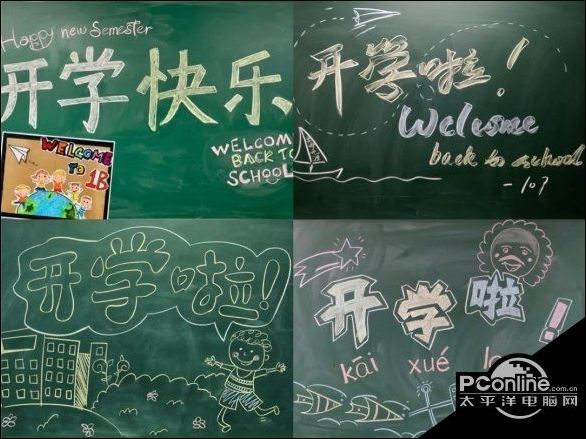 Happy new Semester
开学快乐
WELCOME
BACK TO
SCHOOL!
WELCOME
TO 1B
开学啦!
Welcome
back to school
-107
开学啦!
开学啦!
kāi xué
PConline.com.cn
太平洋电脑网